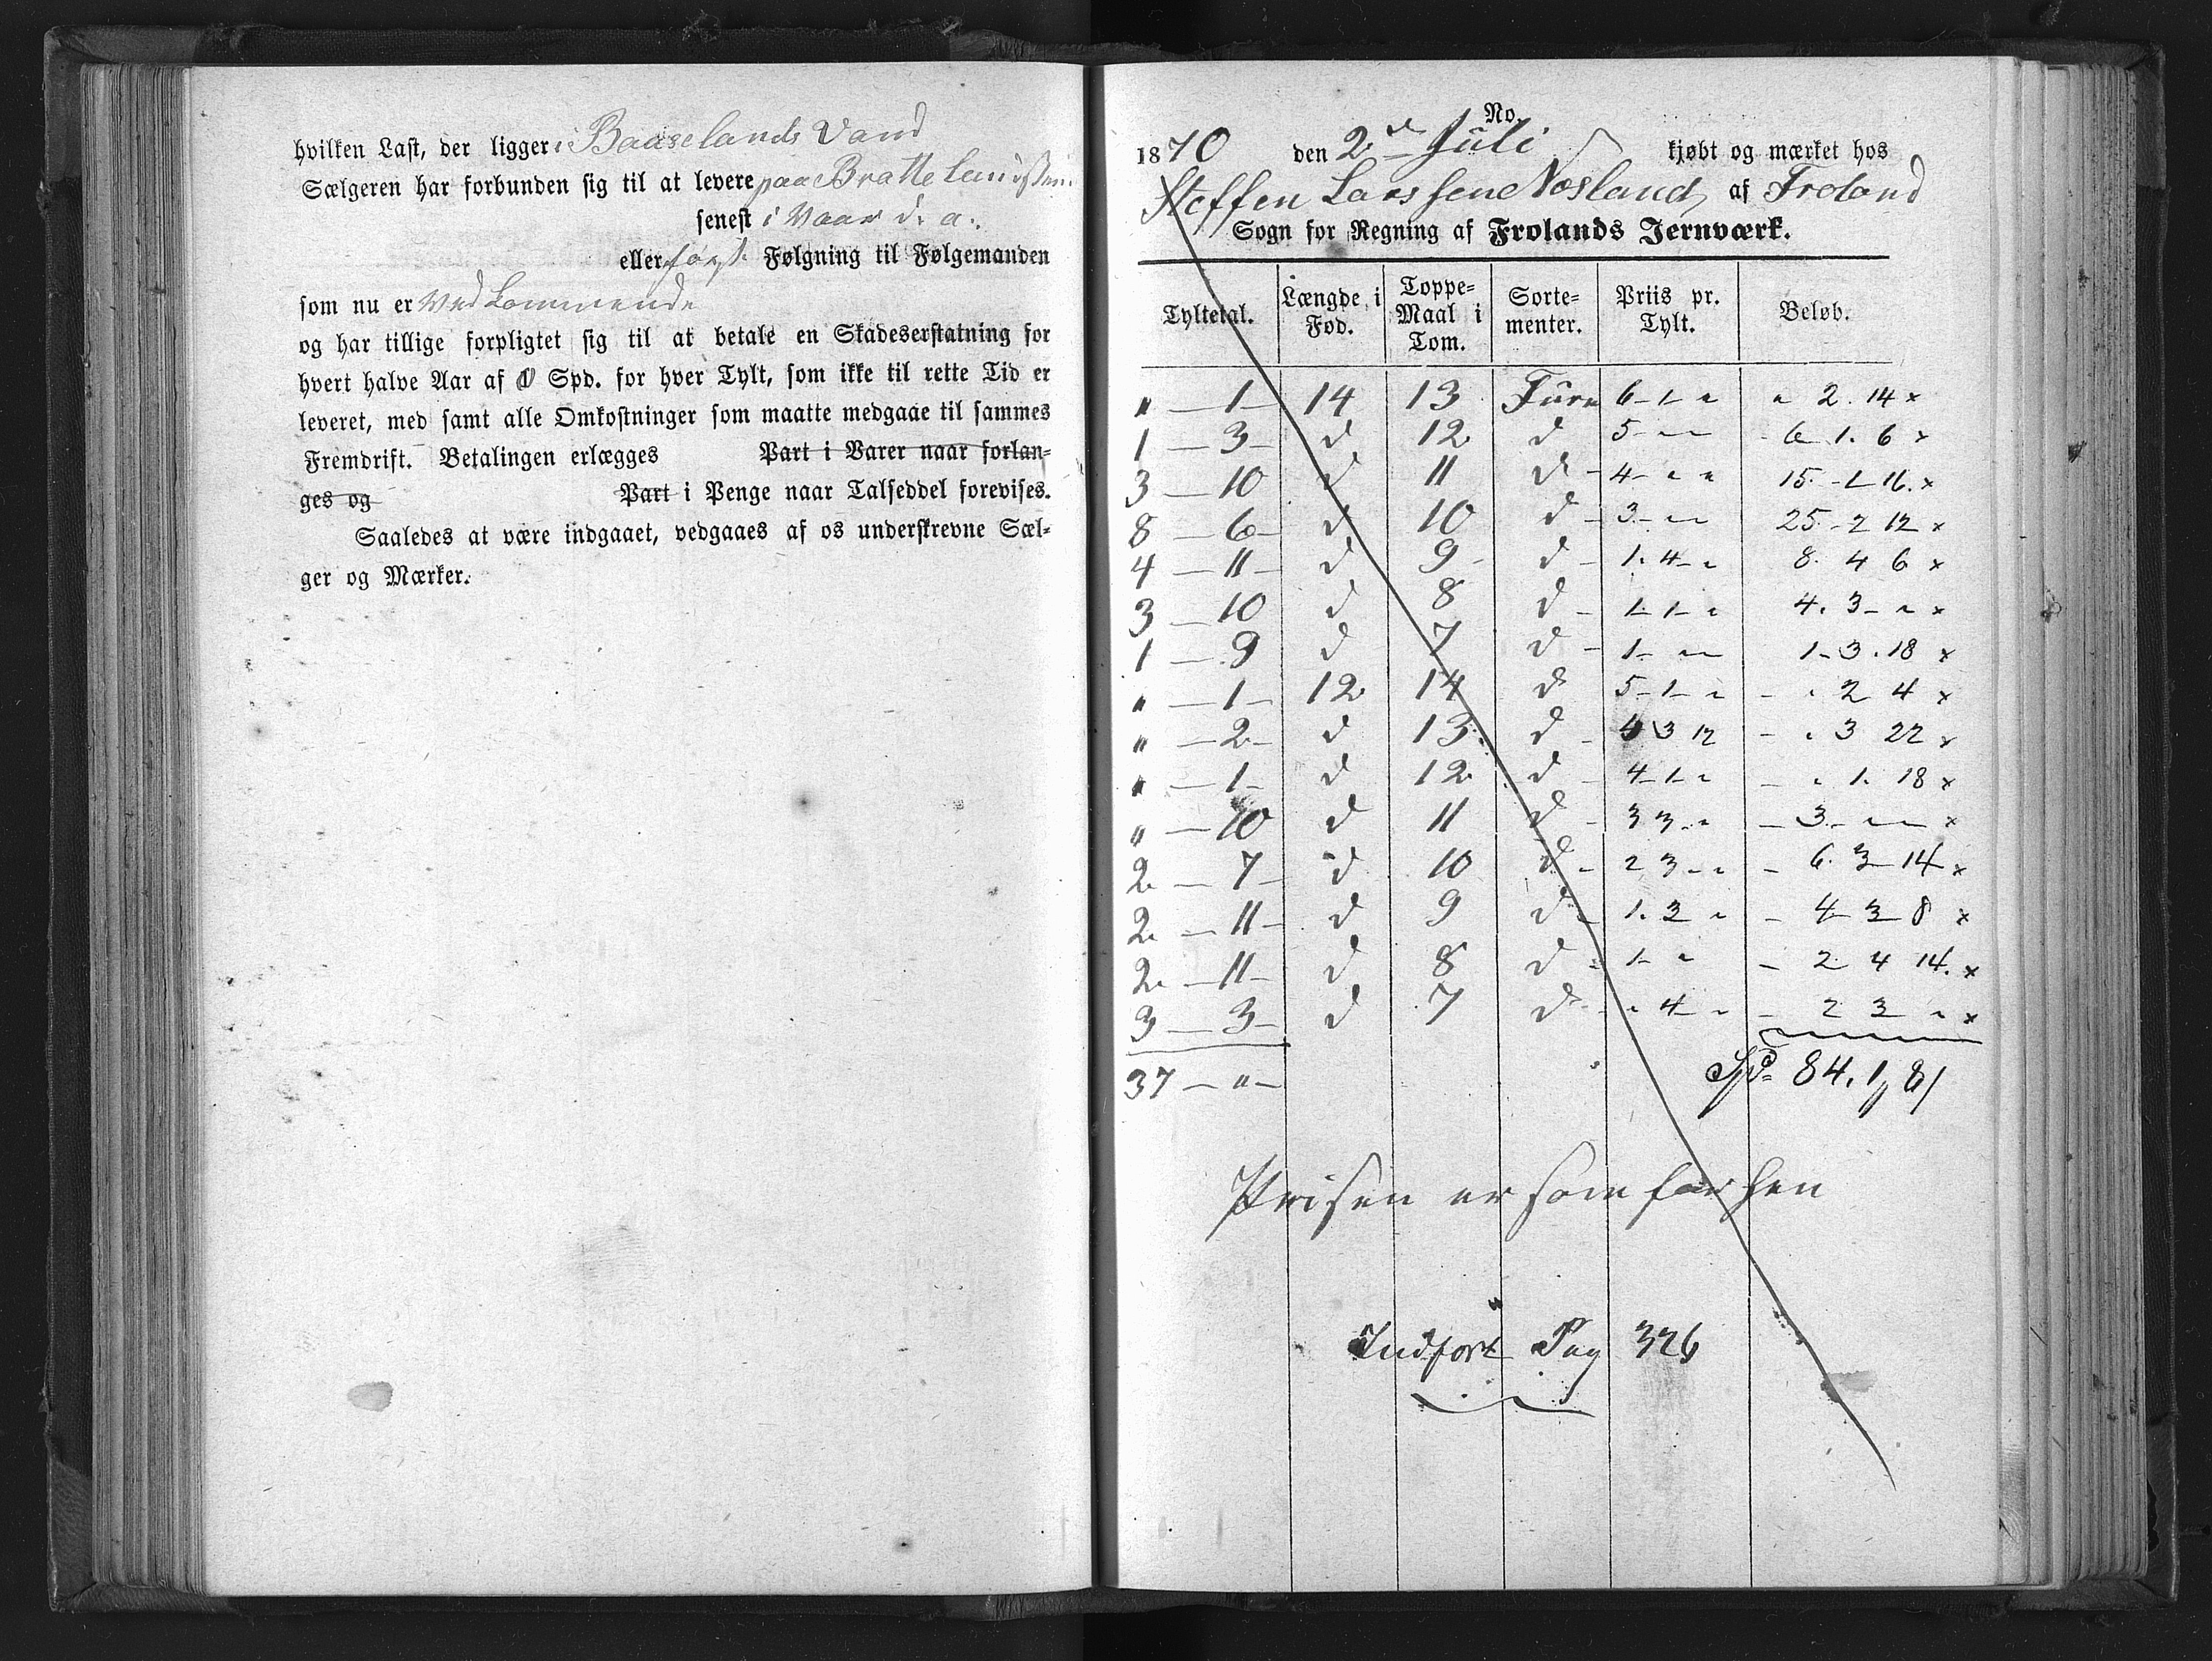 hvilken Last, der ligger i Baaselands Vand
Sælgeren har forbunden sig til at levere paa Bratteland
senest i Vaar d. a.
eller først Følgning til Følgemanden
som nu er Vedkommende
og har tillige forpligtet sig til at betale en Skadeserstatning for
hvert halve Aar af Spd. for hver Tylt, som ikke til rette Tid er
leveret, med samt alle Omkostninger som maatte medgaae til sammes
Fremdrift. Betalingen erlægges Part i Varer naar forlan-
ges og Part i Penge naar Talseddel forevises.
Saaledes at være indgaaet, vedgaaes af os underskrevne Sæl-
ger og Mærker.
No.
1870 den 2d Juli kjøbt og mærket hos
Steffen Larssen Nosland af Froland
Sogn for Regning af Frolands Jernværk.
Tyltetal. Længde i Fod. Toppe-Maal i Tom. Sorte-menter. Priis pr. Tylt. Beløb.
" — 1 — 14 13 Furu 6 - 1 - " " 2. 14 x
1 — 3 — d 12 d 5 - " " - 6 1. 6 x
3 — 10 d 11 d - 4 - " " 15. - 1 16. x
8 — 6 — d 10 d - 3 - " " 25 - 2 12 x
4 — 11 — d 9 - d - 1. 4 - " 8. 4 6 x
3 — 10 d 8 d - 1 - 1 - " 4. 3 - " x
1 — 9 d 7 d - 1 - " " 1 - 3. 18 x
" — 1 — 12 14 d 5 - 1 - " - " 2 4 x
" — 2 — d 13. d - 4 3 12 - " 3 22 x
" — 1 - d 12 d - 4 - 1 - " - " 1. 18 x
" — 10 d 11 d - 3 3 - " - 3 - " " x
2 — 7 - d 10 d - 2 3 - " - 6. 3 - 14 x
2 — 11 - d 9 d - 1. 3 " - 4 - 3 8 x
2 — 11 - d 8 d - 1 - " - 2 4 14. x
3 — 3 - d 7 d - " 4 - " - 2 3 " x
37 — " — Spd 84. 1 81
Prisen er som forhen
Indført Pag 326